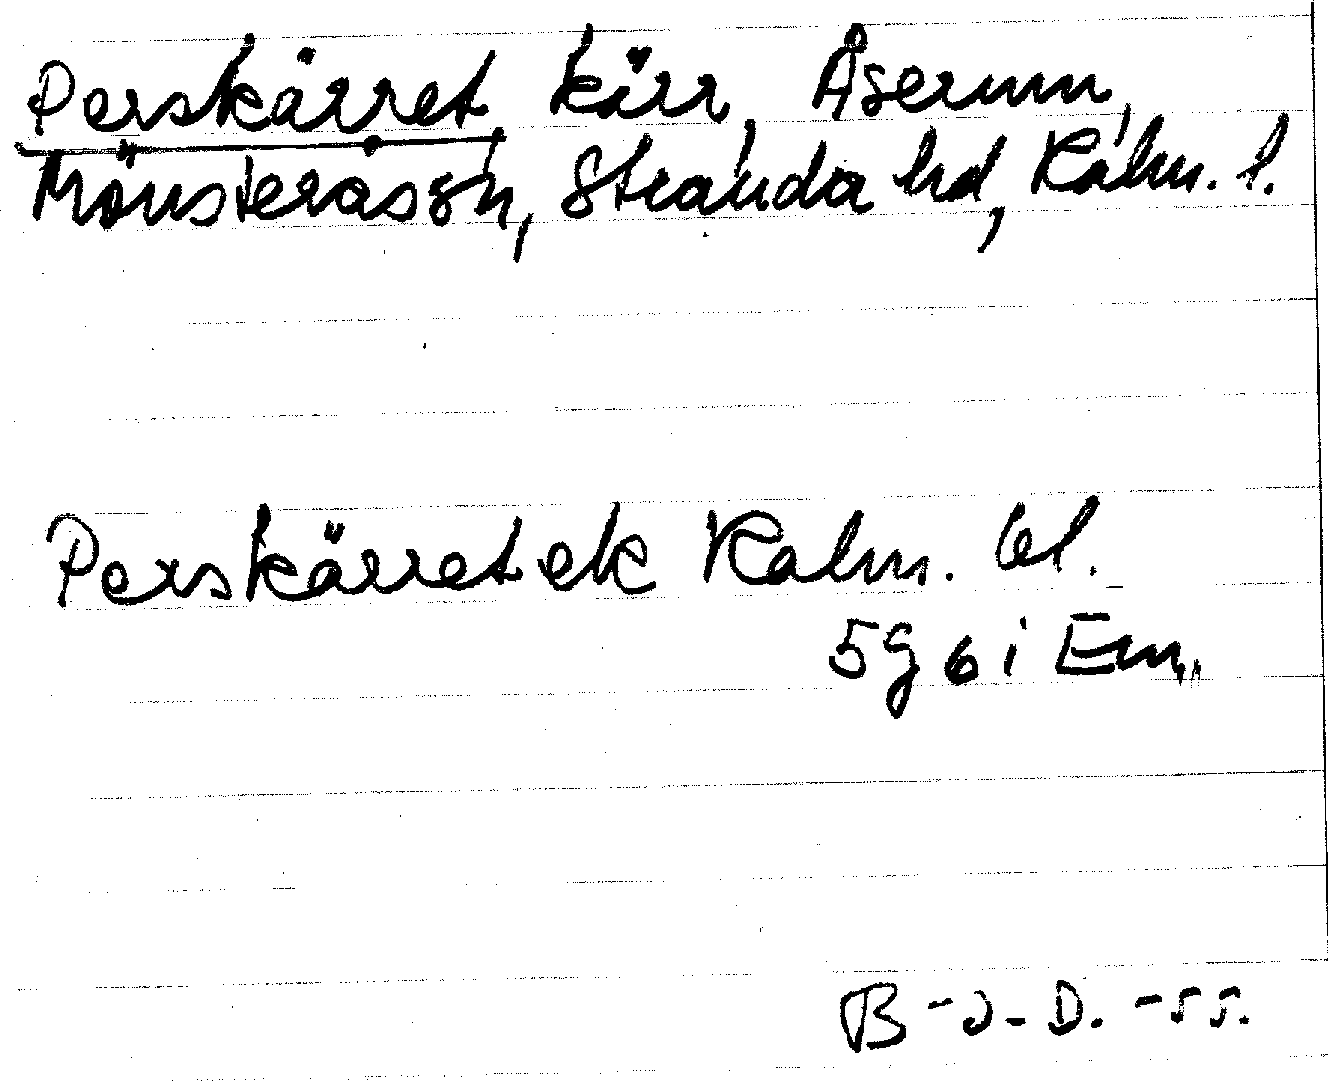 Perskärret, kärr, Åserum,
Mönsterås sn, Stranda hd, Kalm. l.
Perskärret ek Kalm. bl.
5g 6 i Em,
B-J-D. -55.